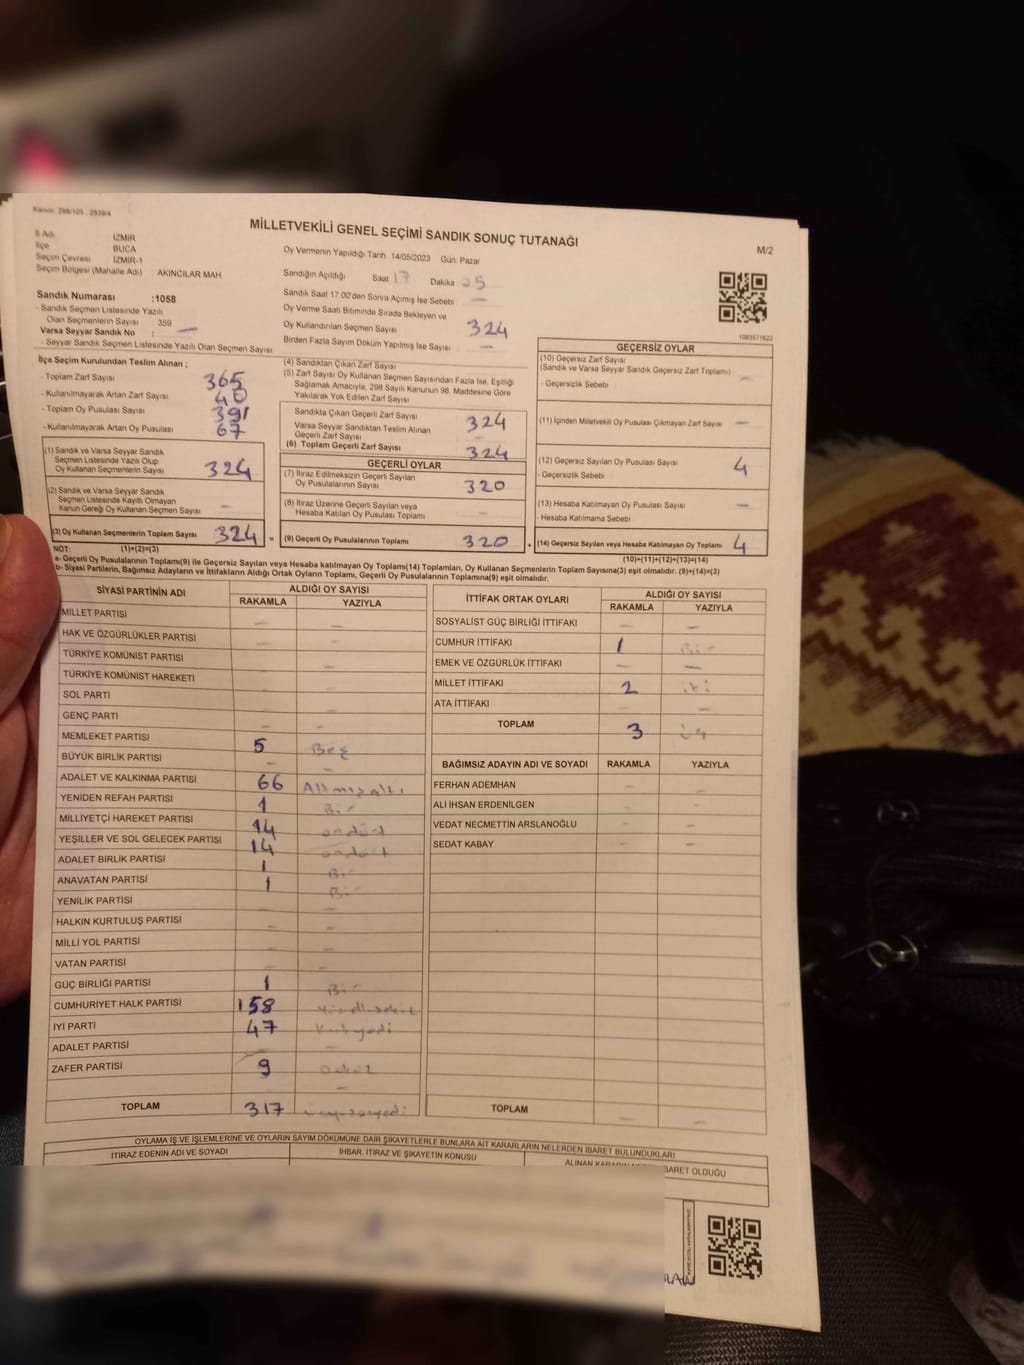 Kanun: 298/105 , 2839/4
MİLLETVEKİLİ GENEL SEÇİMİ SANDIK SONUÇ TUTANAĞI
M/2
İl Adı : İZMİR
İlçe : BUCA
Seçim Çevresi : İZMİR-1
Seçim Bölgesi (Mahalle Adı) : AKINCILAR MAH
Sandık Numarası :1058
- Sandık Seçmen Listesinde Yazılı
Olan Seçmenlerin Sayısı 359
Varsa Seyyar Sandık No : —
- Seyyar Sandık Seçmen Listesinde Yazılı Olan Seçmen Sayısı
Oy Vermenin Yapıldığı Tarih :14/05/2023 Gün: Pazar
Sandığın Açıldığı Saat 17 Dakika
Sandık Saat 17:00'den Sonra Açımış İse Sebebi —
Oy Verme Saati Bitiminde Sırada Bekleyen ve
Oy Kullandırılan Seçmen Sayısı 324
Birden Fazla Sayım Döküm Yapılmış İse Sayısı —
1083571622
İlçe Seçim Kurulundan Teslim Alınan ;
- Toplam Zarf Sayısı 365
- Kullanılmayarak Artan Zarf Sayısı 40
- Toplam Oy Pusulası Sayısı 391
- Kullanılmayarak Artan Oy Pusulası 67
(1) Sandık ve Varsa Seyyar Sandık
Seçmen Listesinde Yazılı Olup
Oy Kullanan Seçmenlerin Sayısı 324
(2) Sandık ve Varsa Seyyar Sandık
Seçmen Listesinde Kayıtlı Olmayan
Kanun Gereği Oy Kullanan Seçmen Sayısı —
(3) Oy Kullanan Seçmenlerin Toplam Sayısı 324 =
(4) Sandıktan Çıkan Zarf Sayısı
(5) Zarf Sayısı Oy Kullanan Seçmen Sayısından Fazla İse, Eşitliği
Sağlamak Amacıyla, 298 Sayılı Kanunun 98. Maddesine Göre
Yakılarak Yok Edilen Zarf Sayısı
Sandıkta Çıkan Geçerli Zarf Sayısı 324
Varsa Seyyar Sandıktan Teslim Alınan
Geçerli Zarf Sayısı —
(6) Toplam Geçerli Zarf Sayısı 324
GEÇERLİ OYLAR
(7) İtiraz Edilmeksizin Geçerli Sayılan
Oy Pusulalarının Sayısı 320
(8) İtiraz Üzerine Geçerli Sayılan veya
Hesaba Katılan Oy Pusulası Toplamı —
(9) Geçerli Oy Pusulalarının Toplamı 320 +
GEÇERSİZ OYLAR
(10) Geçersiz Zarf Sayısı
(Sandık ve Varsa Seyyar Sandık Geçersiz Zarf Toplamı) —
- Geçersizlik Sebebi
(11) İçinden Milletvekili Oy Pusulası Çıkmayan Zarf Sayısı —
(12) Geçersiz Sayılan Oy Pusulası Sayısı 4
- Geçersizlik Sebebi
(13) Hesaba Katılmayan Oy Pusulası Sayısı —
- Hesaba Katılmama Sebebi
(14) Geçersiz Sayılan veya Hesaba Katılmayan Oy Toplamı 4
NOT: (1)+(2)=(3) (10)+(11)+(12)+(13)=(14)
a- Geçerli Oy Pusulalarının Toplamı(9) ile Geçersiz Sayılan veya Hesaba katılmayan Oy Toplamı(14) Toplamları, Oy Kullanan Seçmenlerin Toplam Sayısına(3) eşit olmalıdır. (9)+(14)=(3)
b- Siyasi Partilerin, Bağımsız Adayların ve İttifakların Aldığı Ortak Oyların Toplamı, Geçerli Oy Pusulalarının Toplamına(9) eşit olmalıdır.
SİYASİ PARTİNİN ADI ALDIĞI OY SAYISI
RAKAMLA YAZIYLA
MİLLET PARTİSİ — —
HAK VE ÖZGÜRLÜKLER PARTİSİ — —
TÜRKİYE KOMÜNİST PARTİSİ
TÜRKİYE KOMÜNİST HAREKETİ —
SOL PARTİ —
GENÇ PARTİ — —
MEMLEKET PARTİSİ 5 Beş
BÜYÜK BİRLİK PARTİSİ — —
ADALET VE KALKINMA PARTİSİ 66 Altmışaltı
YENİDEN REFAH PARTİSİ 1 Bir
MİLLİYETÇİ HAREKET PARTİSİ 14 ondört
YEŞİLLER VE SOL GELECEK PARTİSİ 14 ondört
ADALET BİRLİK PARTİSİ 1 Bir
ANAVATAN PARTİSİ 1 Bir
YENİLİK PARTİSİ — —
HALKIN KURTULUŞ PARTİSİ — —
MİLLİ YOL PARTİSİ — —
VATAN PARTİSİ — —
GÜÇ BİRLİĞİ PARTİSİ 1 Bir
CUMHURİYET HALK PARTİSİ 158
İYİ PARTİ 47 Kırkyedi
ADALET PARTİSİ — —
ZAFER PARTİSİ 9
TOPLAM 317
İTTİFAK ORTAK OYLARI ALDIĞI OY SAYISI
RAKAMLA YAZIYLA
SOSYALİST GÜÇ BİRLİĞİ İTTİFAKI — —
CUMHUR İTTİFAKI 1 Bir
EMEK VE ÖZGÜRLÜK İTTİFAKI — —
MİLLET İTTİFAKI 2 iki
ATA İTTİFAKI — —
TOPLAM 3 üç
BAĞIMSIZ ADAYIN ADI VE SOYADI RAKAMLA YAZIYLA
FERHAN ADEMHAN — —
ALİ İHSAN ERDENİLGEN — —
VEDAT NECMETTİN ARSLANOĞLU — —
SEDAT KABAY — —
TOPLAM — —
OYLAMA İŞ VE İŞLEMLERİNE VE OYLARIN SAYIM DÖKÜMÜNE DAİR ŞİKAYETLERLE BUNLARA AİT KARARLARIN NELERDEN İBARET BULUNDUKLARI
İTİRAZ EDENİN ADI VE SOYADI İHBAR, İTİRAZ VE ŞİKAYETİN KONUSU ALINAN İBARET OLDUĞU